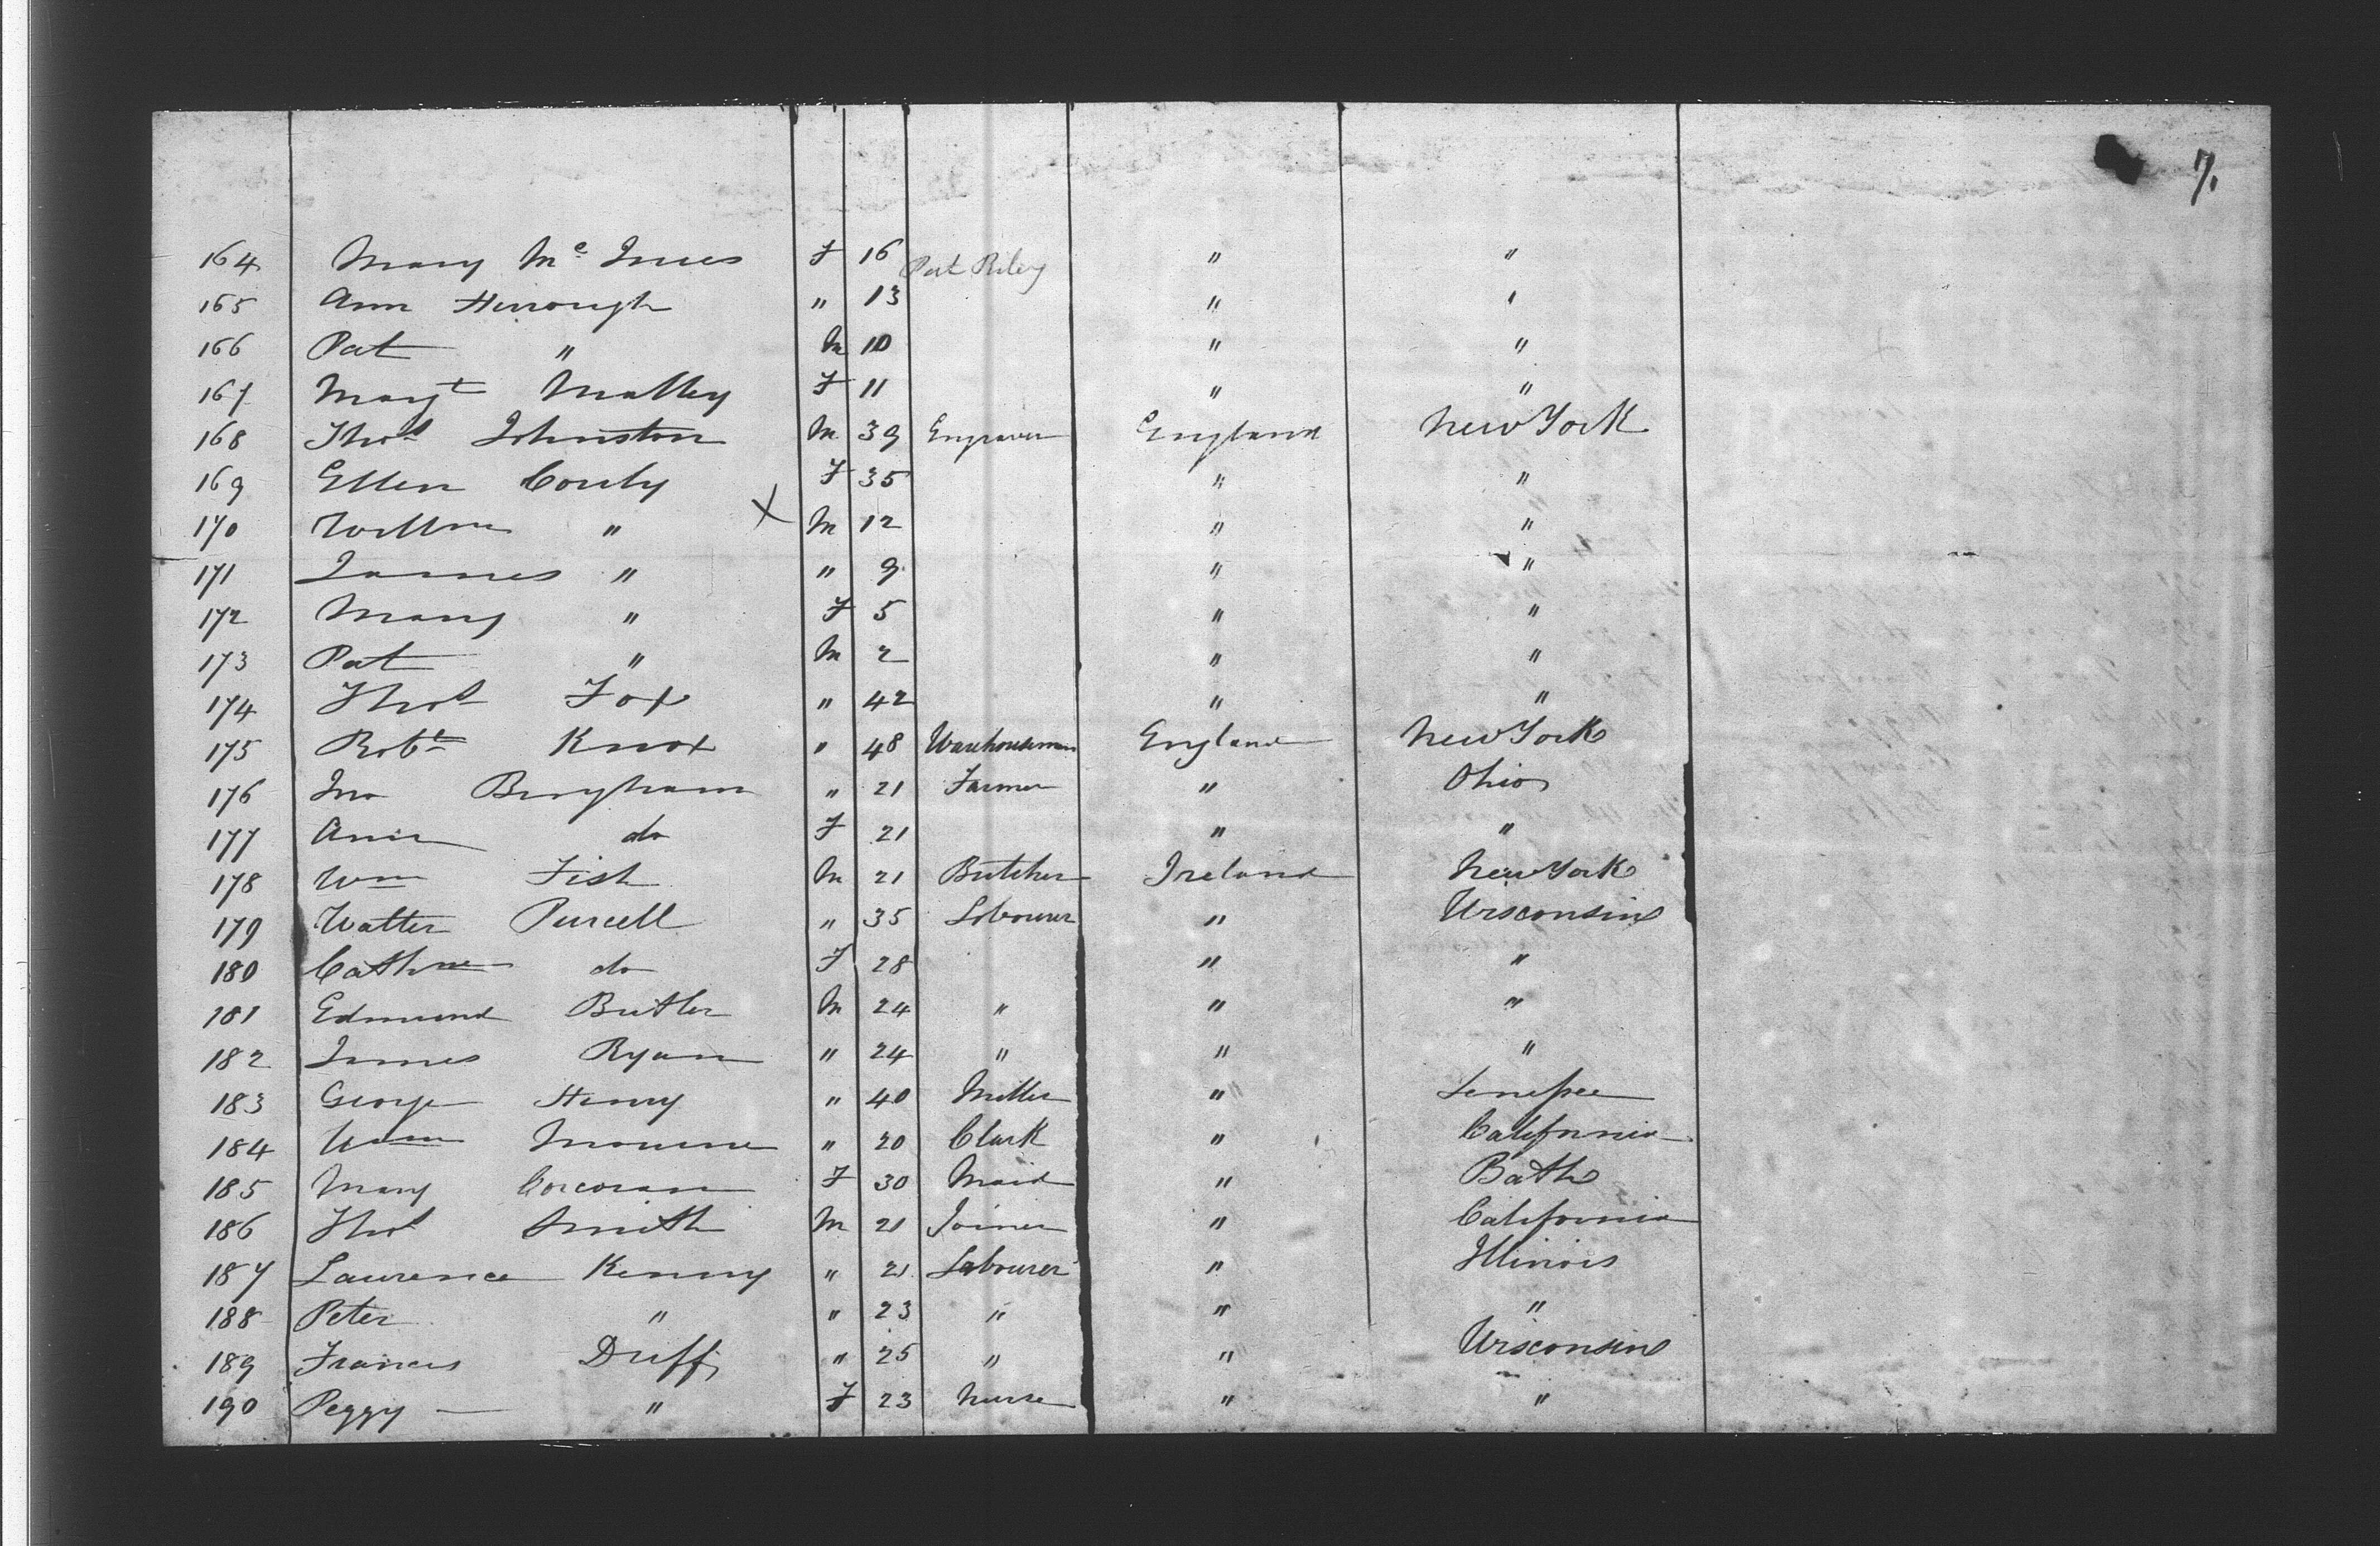 7.
164 Mary Mc Innes F 16 " "
Pat Riley
165 Ann Hurrough " 13 " "
166 Pat " M 10 " "
167 Margt Malley F 11 " "
168 Thos Johnston M 39 Engraver England New York
169 Ellen Conly F 35 " "
170 Willm " X M 12 " "
171 James " " 9 " "
172 Mary " F 5 " "
173 Pat " M 2 " "
174 Thos Fox " 42 " "
175 Robt Knox " 48 Warehouseman England New York
176 Jno Bingham " 21 Farmer " Ohio
177 Ann do F 21 " "
178 Wm Fish M 21 Butcher Ireland New York
179 Walter Purcell " 35 Labourer " Wisconsin
180 Cathne do F 28 " "
181 Edmund Butler M 24 " " "
182 James Ryan " 24 " " "
183 George Henry " 40 Miller "
184 Wm " 20 Clark " California
185 Mary Corcoran F 30 Maid " Bath
186 Thos Smith M 21 Joiner " California
187 Lawrence Kenny " 21 Labourer " Illinois
188 Peter " " 23 " " "
189 Francis Duffy " 25 " " Wisconsin
190 Peggy " F 23 Nurse " "